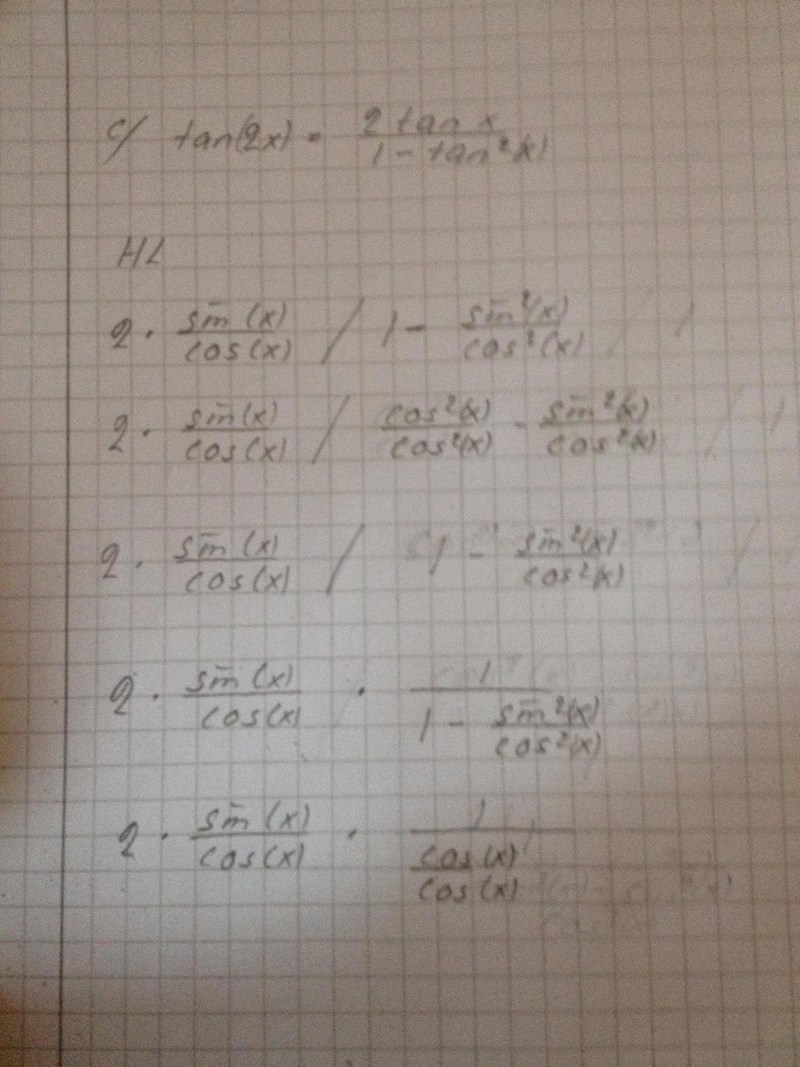 c/ tan(2x) = 2 tan x / 1 - tan²(x)
HL
2 · sin(x)/cos(x) / 1 - sin²(x)/cos²(x)
2 · sin(x)/cos(x) / cos²(x)/cos²(x) - sin²(x)/cos²(x)
2 · sin(x)/cos(x) / 1 - sin²(x)/cos²(x)
2 · sin(x)/cos(x) · 1/(1 - sin²(x)/cos²(x))
2 · sin(x)/cos(x) · 1/(cos(x)/cos(x))